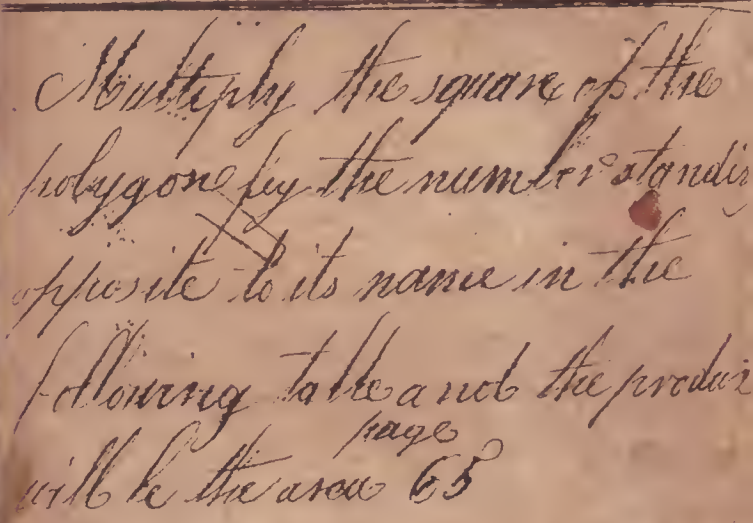 Multiply the square of the
polygon by the number standin
opposite to its name in the
following table and the produc
page
will be the area 65